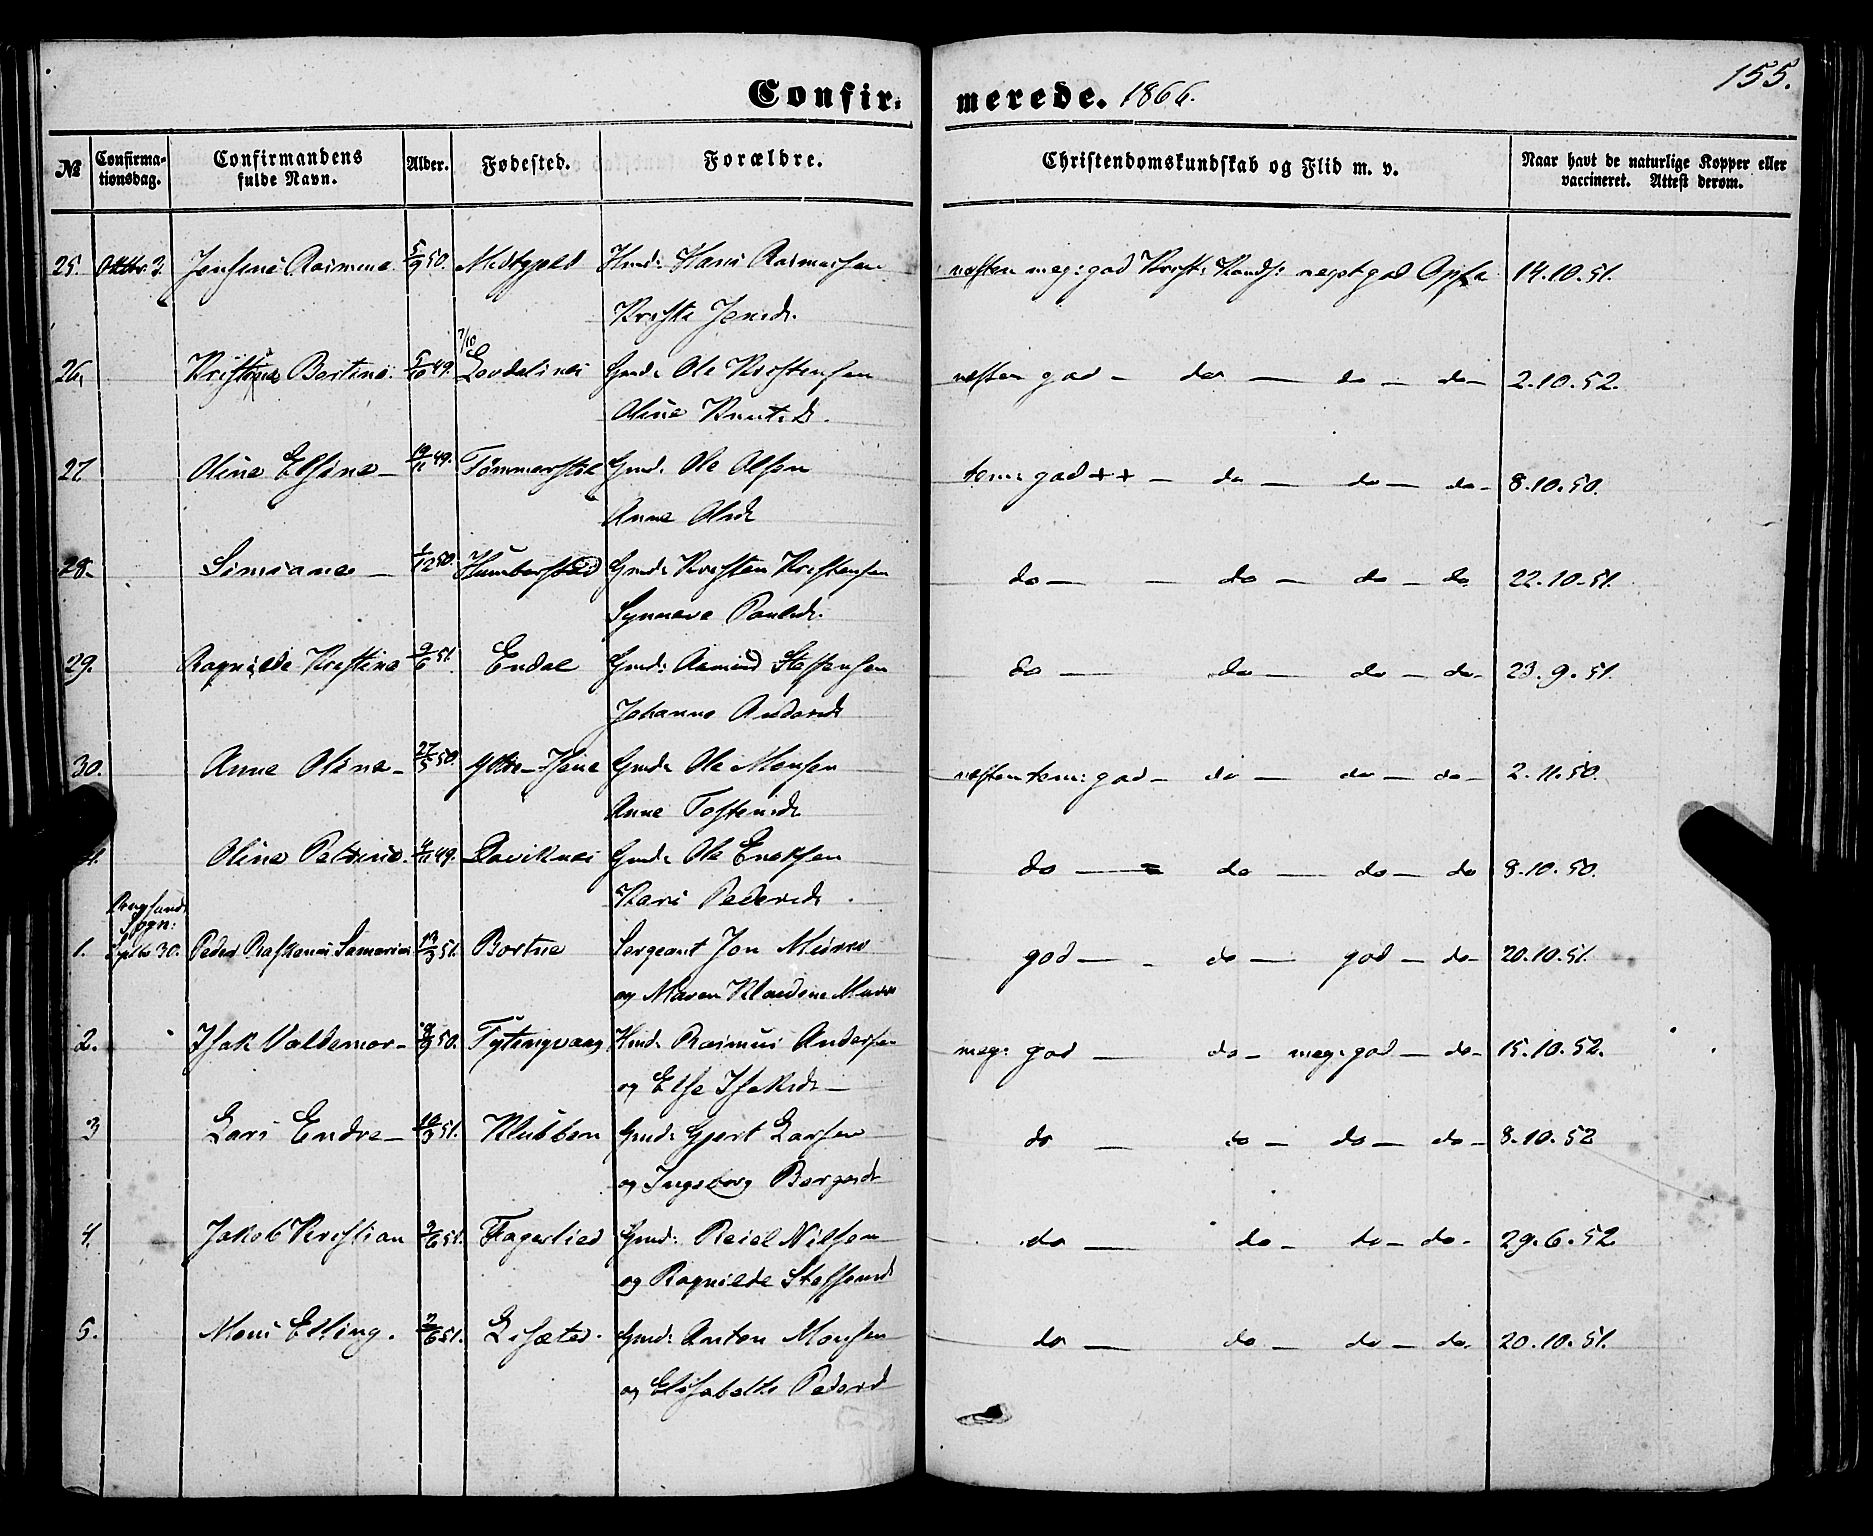 155.
Confir- merede. 1866.
№ Confirma-tionsdag. Confirmandens fulde Navn. Alder. Fødested. Forældre. Christendomskundskab og Flid m. v. Naar havt de naturlige Kopper eller vaccineret. Attest derom.
25. Oktbr 3. Jensine Rasmine. 5/9 50. Midtgjeld Hmd: Hans Rasmussen næsten meg: god Krist: Kundsk: meget god Opfs 14.10.51.
Kristi Jensd.
26. Bertine. 5/10 49. 7/10 Gmd: Ole Kristensen næsten god - do — do — do — 2.10.52.
Oline Knutsd.
27 Oline Elsine — 49. Tømmerstøl Gmd: Ole Olsen tem: god ++ — do — do — do — 8.10.50.
Anne Olsd
28. Simiane — 1/12 50. Humberstad Gmd: Kristen Kristensen do — — do — do — do 22.10.51.
Synneve Paulsd.
29. Ragnilde Kristine 9/6 51. Endal Gmd: Rasmus Steffensen do — do — do — do — 23.9.51.
Johanne Andersd
30. Anne Oline — 27/5 50. Ytre-Hjene Gmd: Ole Monsen næsten tem: god — do — do — do — 2.11.50.
Anne Tostensd
Oline Petrine. 49. Daviknes Gmd: Ole Eneksen do — do — do — do 8.10.50.
Kari Pedersd.
Sogn:
1. Septbr 30. Peder Samarias 13/3 51. Bortne Sergeant Jon god — - do — god — do — 20.10.51.
og Maren Klaudine
2. Isak Valdemar — 50. Tytingvaag Hmd: Rasmus Andersen meg: god — do — meg: god — do — 15.10.52.
og Else Isaksd —
3 Lars Endre — 51. Klubben Gmd: Gjert Larsen do — do — do — do — 8.10.52
og Ingeborg
4. Jakob Kristian 9/6 51. Fagerlied Gmd: Reiel Nilsen do — do — do — do - 29.6.52
og Ragnilde Steffensd
5. Mons Elling. 2/6 51. Lisæter. Gmd: Anton Monsen do — do — do — do. 20.10.51.
og Elisabeth Pedersd